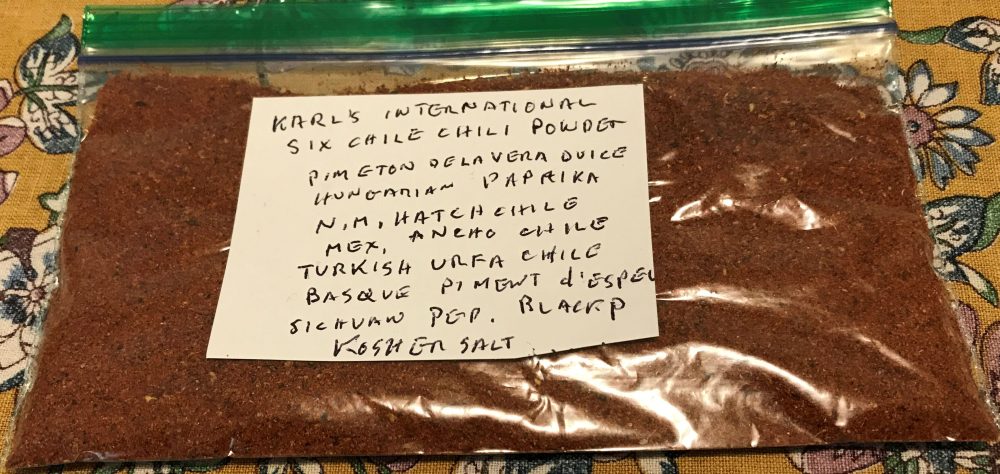 KARL'S INTERNATIONAL
SIX CHILE CHILI POWDER
PIMETON DE LA VERA DULCE
HUNGARIAN PAPRIKA
N.M. HATCH CHILE
MEX. ANCHO CHILE
TURKISH URFA CHILE
BASQUE PIMENT d'ESPEL
SICHUAN PEP. BLACK P
KOSHER SALT